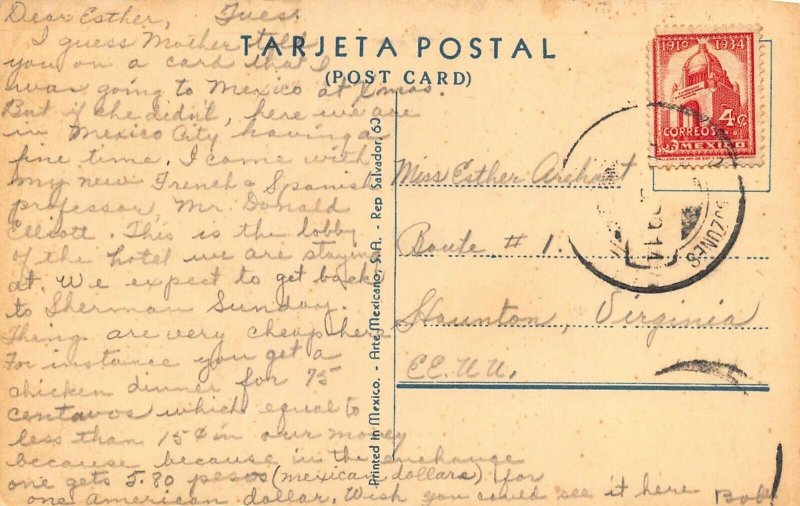 Dear Esther, Tues.
I guess Mother told
you on a card that I
was going to Mexico at Xmas.
But if she didn't, here we are
in Mexico City having a
fine time. I came with
my new French & Spanish
professor, Mr. Donald
Elliott. This is the lobby
of the hotel we are staying
at. We expect to get back
to Sherman Sunday.
Things are very cheap here
For instance you get a
chicken dinner for 75
centavos which equal to
less than 15¢ in our money
because because in the exchange
one gets 5.80 pesos (mexican dollars) for
one American dollar. Wish you could see it here Bob
TARJETA POSTAL
(POST CARD)
Printed in Mexico. - Arte Mexicano, S.A. - Rep Salvador, 60
1910 1934
4¢
CORREOS
MEXICO
BUZONES
Miss Esther Arehart
Route # 1.
Staunton, Virginia
EE.UU.